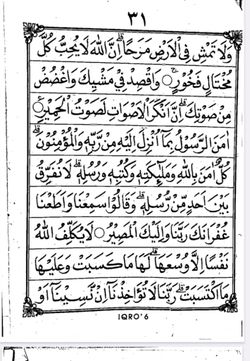 ٣١
وَلَا تَمْشِ فِي الْأَرْضِ مَرَحًا ۗ إِنَّ اللّٰهَ لَا يُحِبُّ كُلَّ
مُخْتَالٍ فَخُوْرٍ ○ وَاقْصِدْ فِيْ مَشْيِكَ وَاغْضُضْ
مِنْ صَوْتِكَ ۗ إِنَّ أَنْكَرَ الْأَصْوَاتِ لَصَوْتُ الْحَمِيْرِ ○
اٰمَنَ الرَّسُوْلُ بِمَآ اُنْزِلَ اِلَيْهِ مِنْ رَّبِّهٖ وَالْمُؤْمِنُوْنَ ۗ
كُلٌّ اٰمَنَ بِاللّٰهِ وَمَلٰٓئِكَتِهٖ وَكُتُبِهٖ وَرُسُلِهٖ ۗ لَا نُفَرِّقُ
بَيْنَ اَحَدٍ مِّنْ رُّسُلِهٖ ۗ وَقَالُوْا سَمِعْنَا وَاَطَعْنَا
غُفْرَانَكَ رَبَّنَا وَاِلَيْكَ الْمَصِيْرُ ○ لَا يُكَلِّفُ اللّٰهُ
نَفْسًا اِلَّا وُسْعَهَا ۗ لَهَا مَا كَسَبَتْ وَعَلَيْهَا
مَا اكْتَسَبَتْ ۗ رَبَّنَا لَا تُؤَاخِذْنَآ اِنْ نَّسِيْنَآ اَوْ
IQRO'6